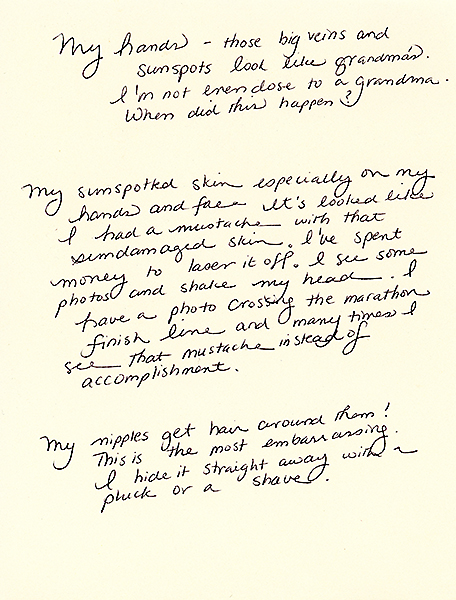 My hands - those big veins and
sunspots look like grandma's.
I'm not even close to a grandma.
When did this happen?
My sunspotted skin especially on my
hands and face. It's looked like
I had a mustache with that
sundamaged skin. I've spent
money to laser it off. I see some
photos and shake my head. I
have a photo crossing the marathon
finish line and many times I
see that mustache instead of
accomplishment.
My nipples get hair around them!
This is the most embarrassing.
I hide it straight away with a
pluck or a shave.